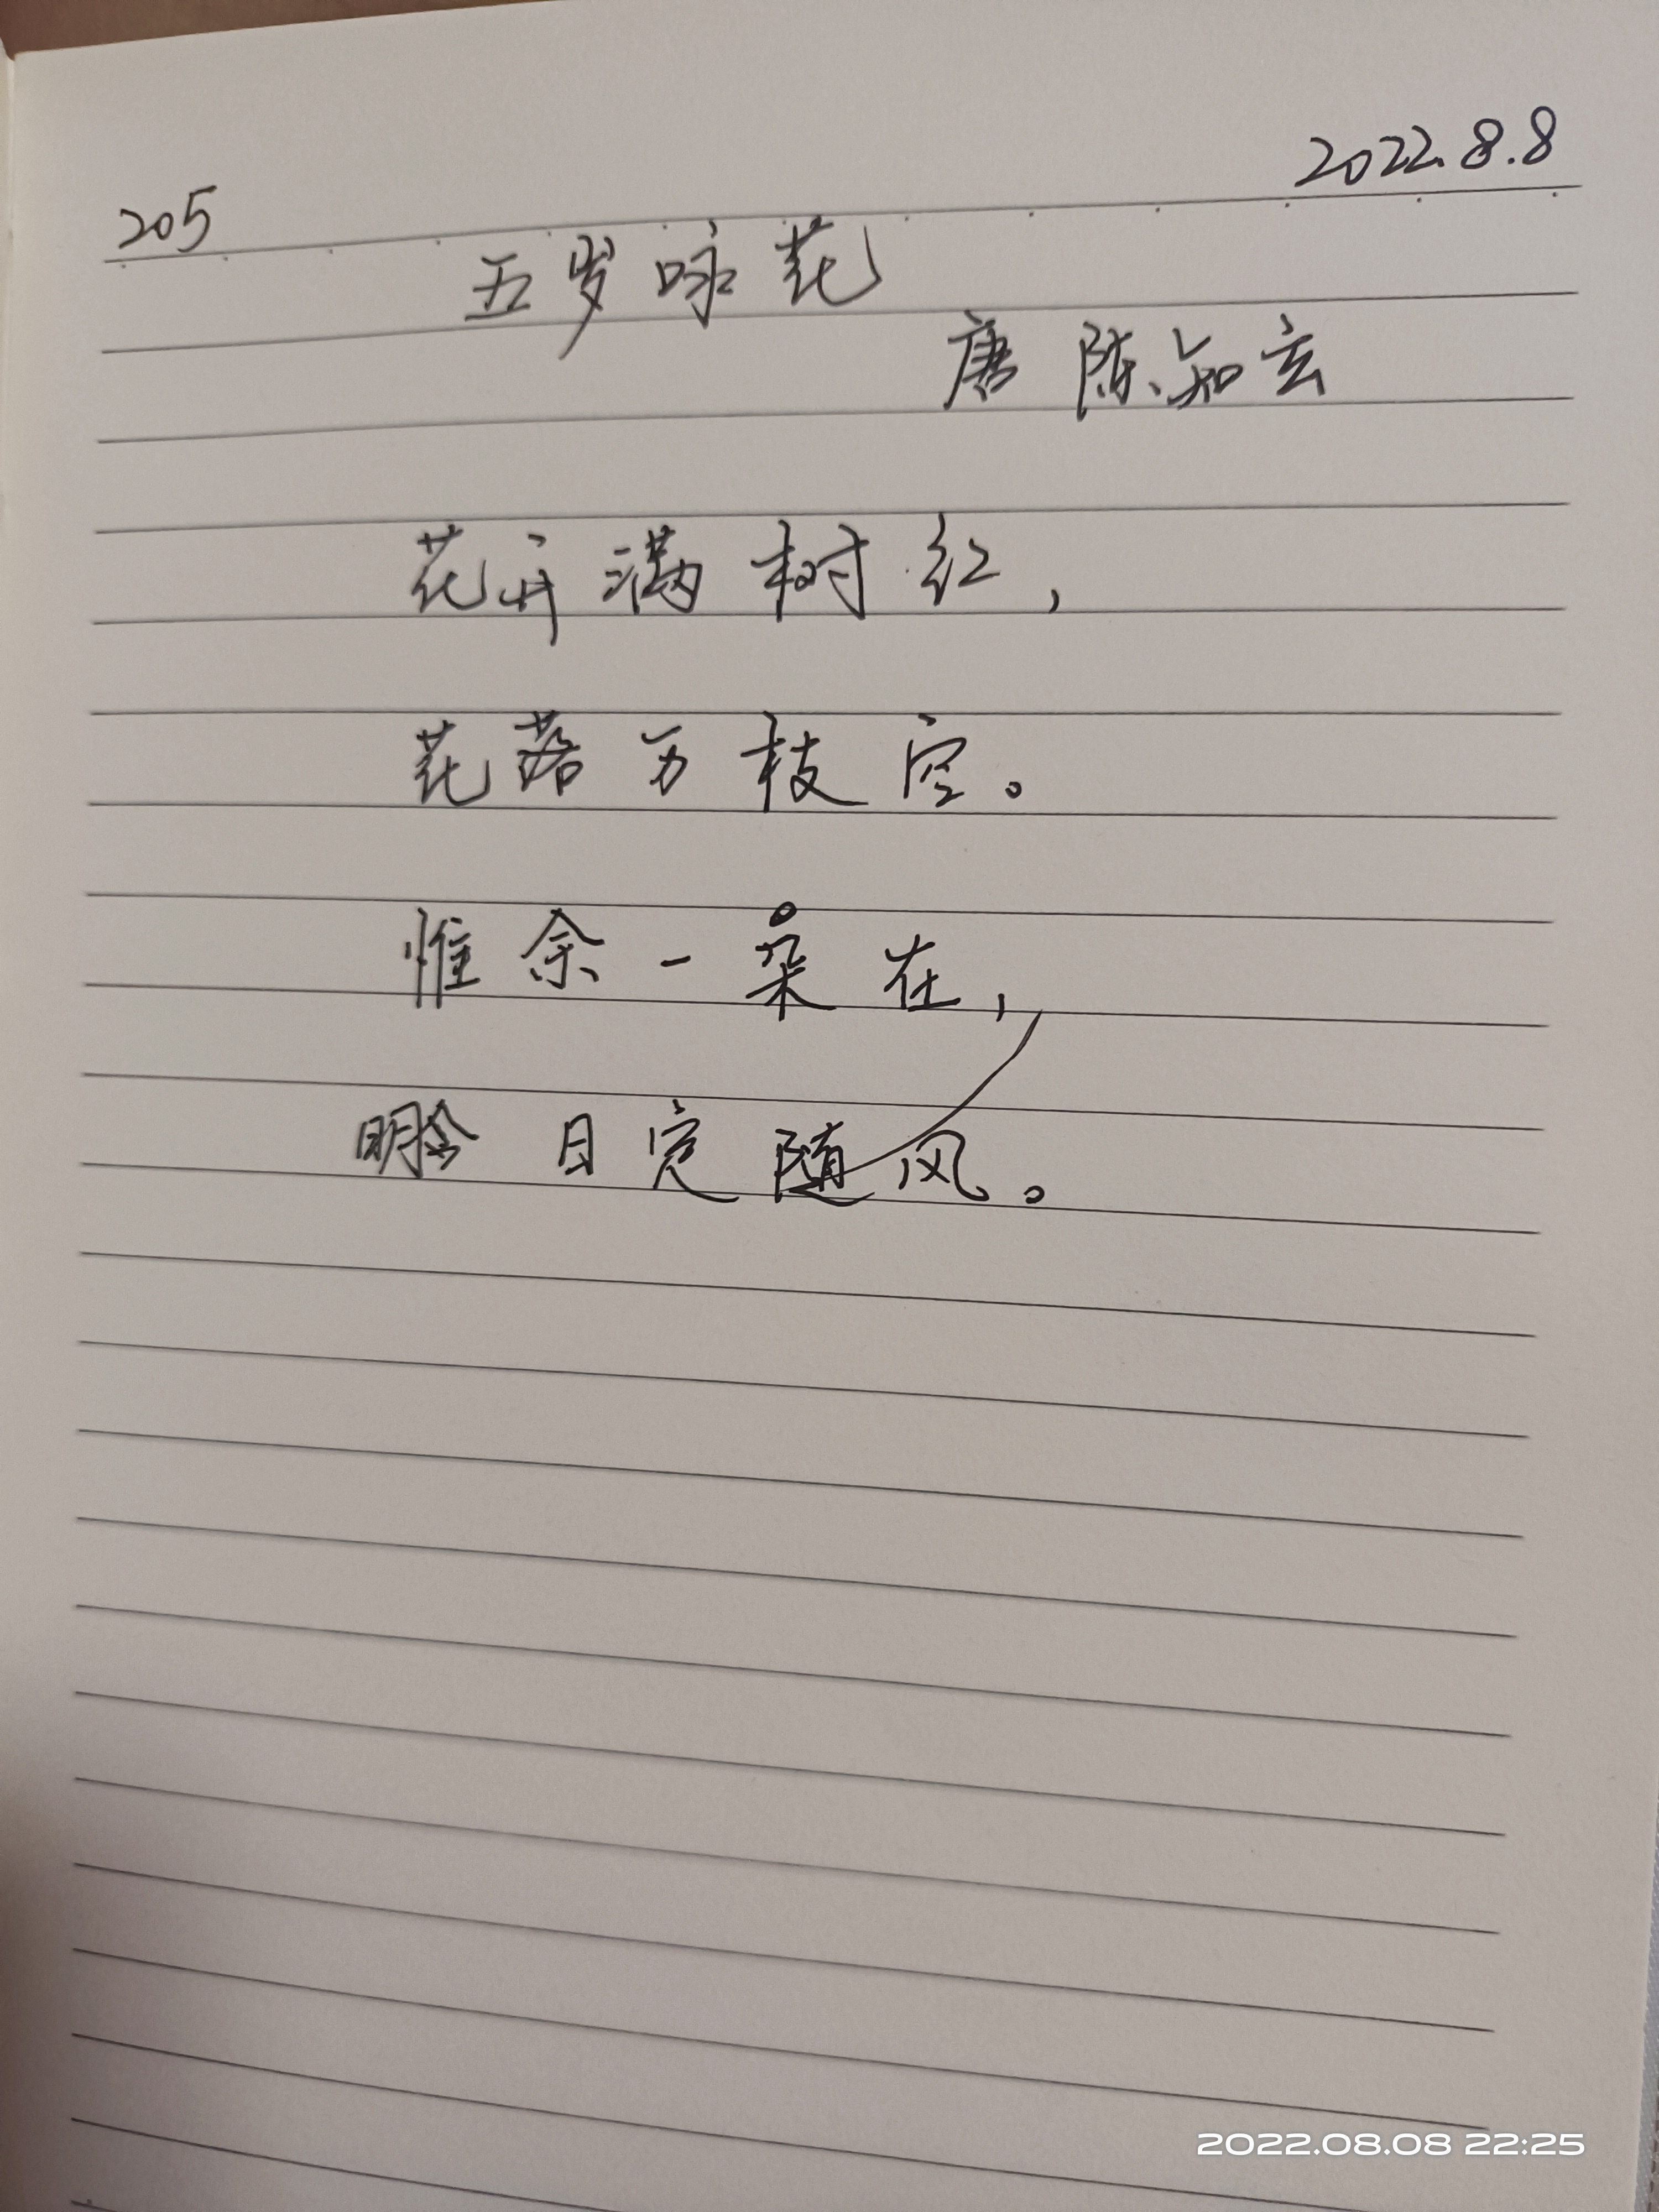 2022.8.8
205
五岁咏花
唐 陈知玄
花开满树红，
花落万枝空。
惟余一朵在，
明日定随风。
2022.08.08 22:25